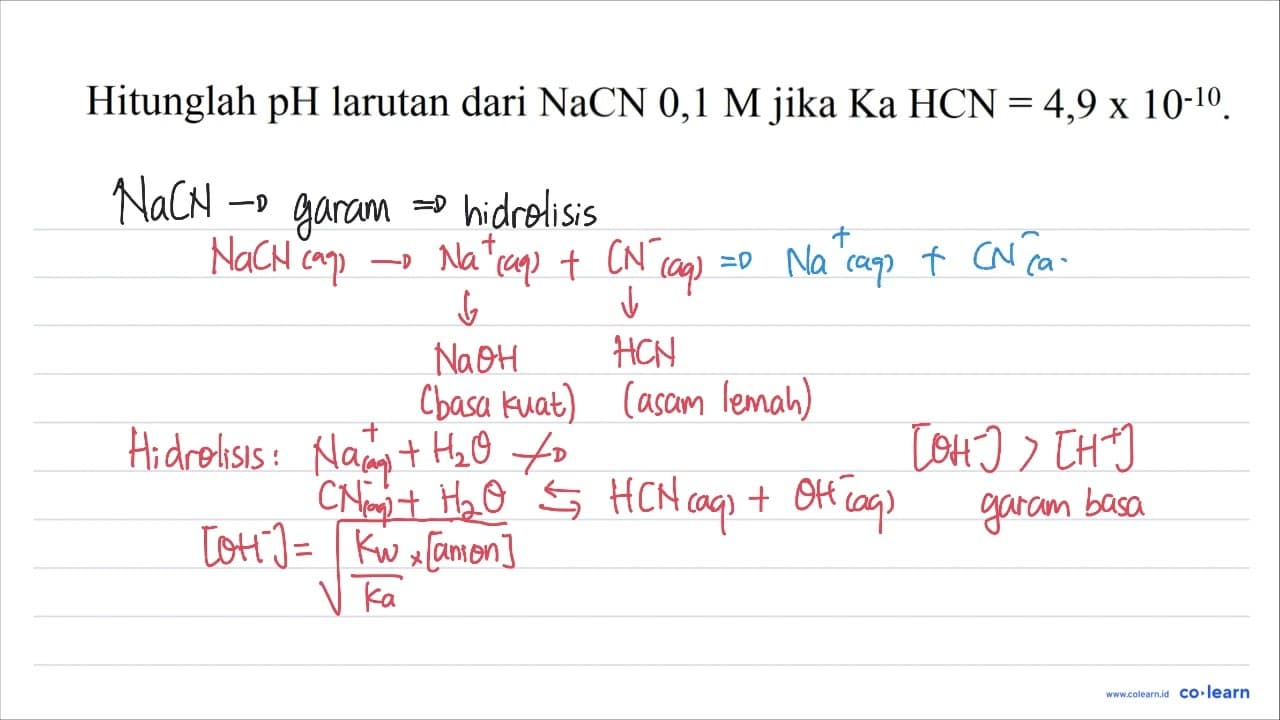 Hitunglah pH larutan dari NaCN 0,1 M jika Ka HCN = 4,9 x 10⁻¹⁰.
NaCN → garam ⇒ hidrolisis
NaCN (aq) → Na⁺(aq) + CN⁻(aq) ⇒ Na⁺(aq) + CN⁻(a.
↓ ↓
NaOH HCN
(basa kuat) (asam lemah)
Hidrolisis: Na⁺(aq) + H₂O ↛ [OH⁻] > [H⁺]
CN⁻(aq) + H₂O ⇆ HCN(aq) + OH⁻(aq) garam basa
[OH⁻] = √ Kw/Ka × [anion]
www.colearn.id co·learn